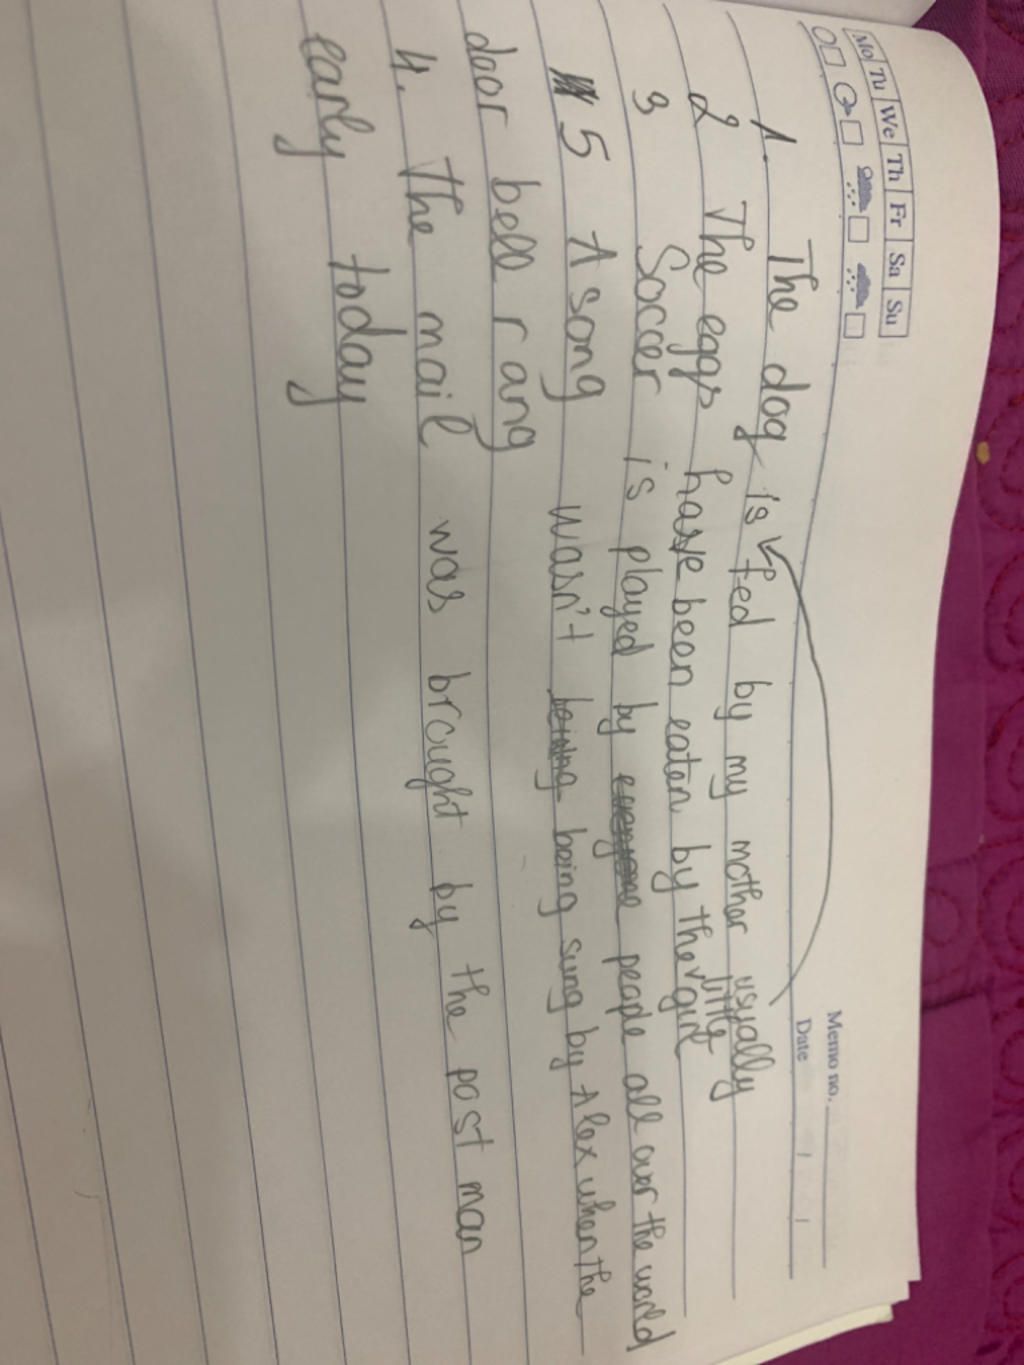 Mo Tu We Th Fr Sa Su
Memo no.
Date / /
1. The dog is fed by my mother usually
2 The eggs have been eaten by the little girl
3 Soccer is played by everyone people all over the world
5 A song wasn't being sung by Alex when the
door bell rang
4. The mail was brought by the post man
early today